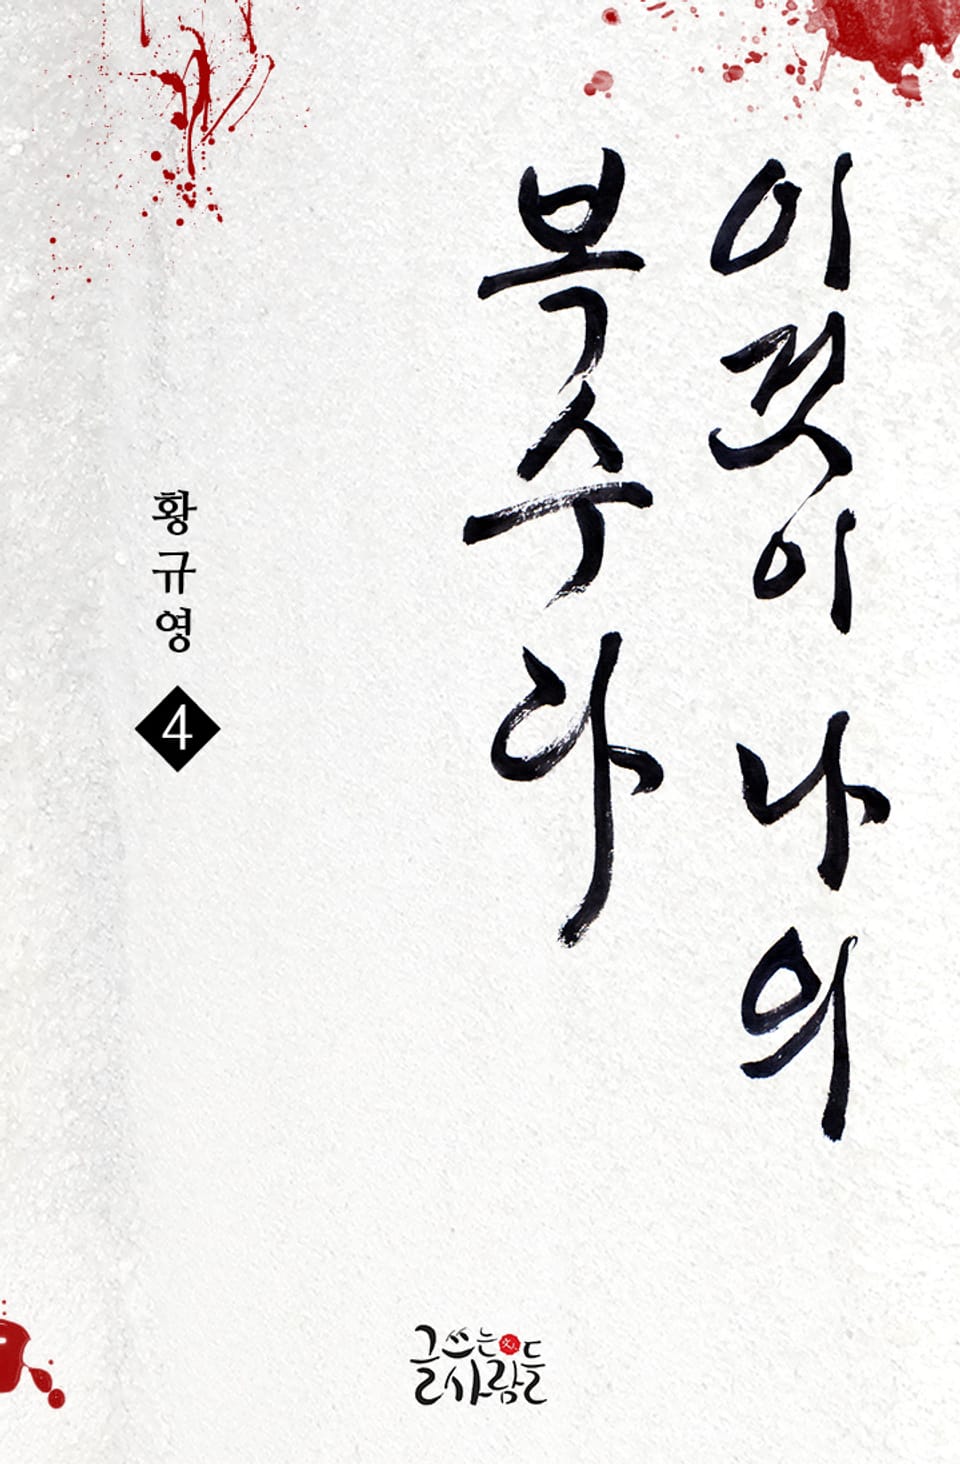 이것이 나의
복수다
황규영
4
글쓰는
사람들